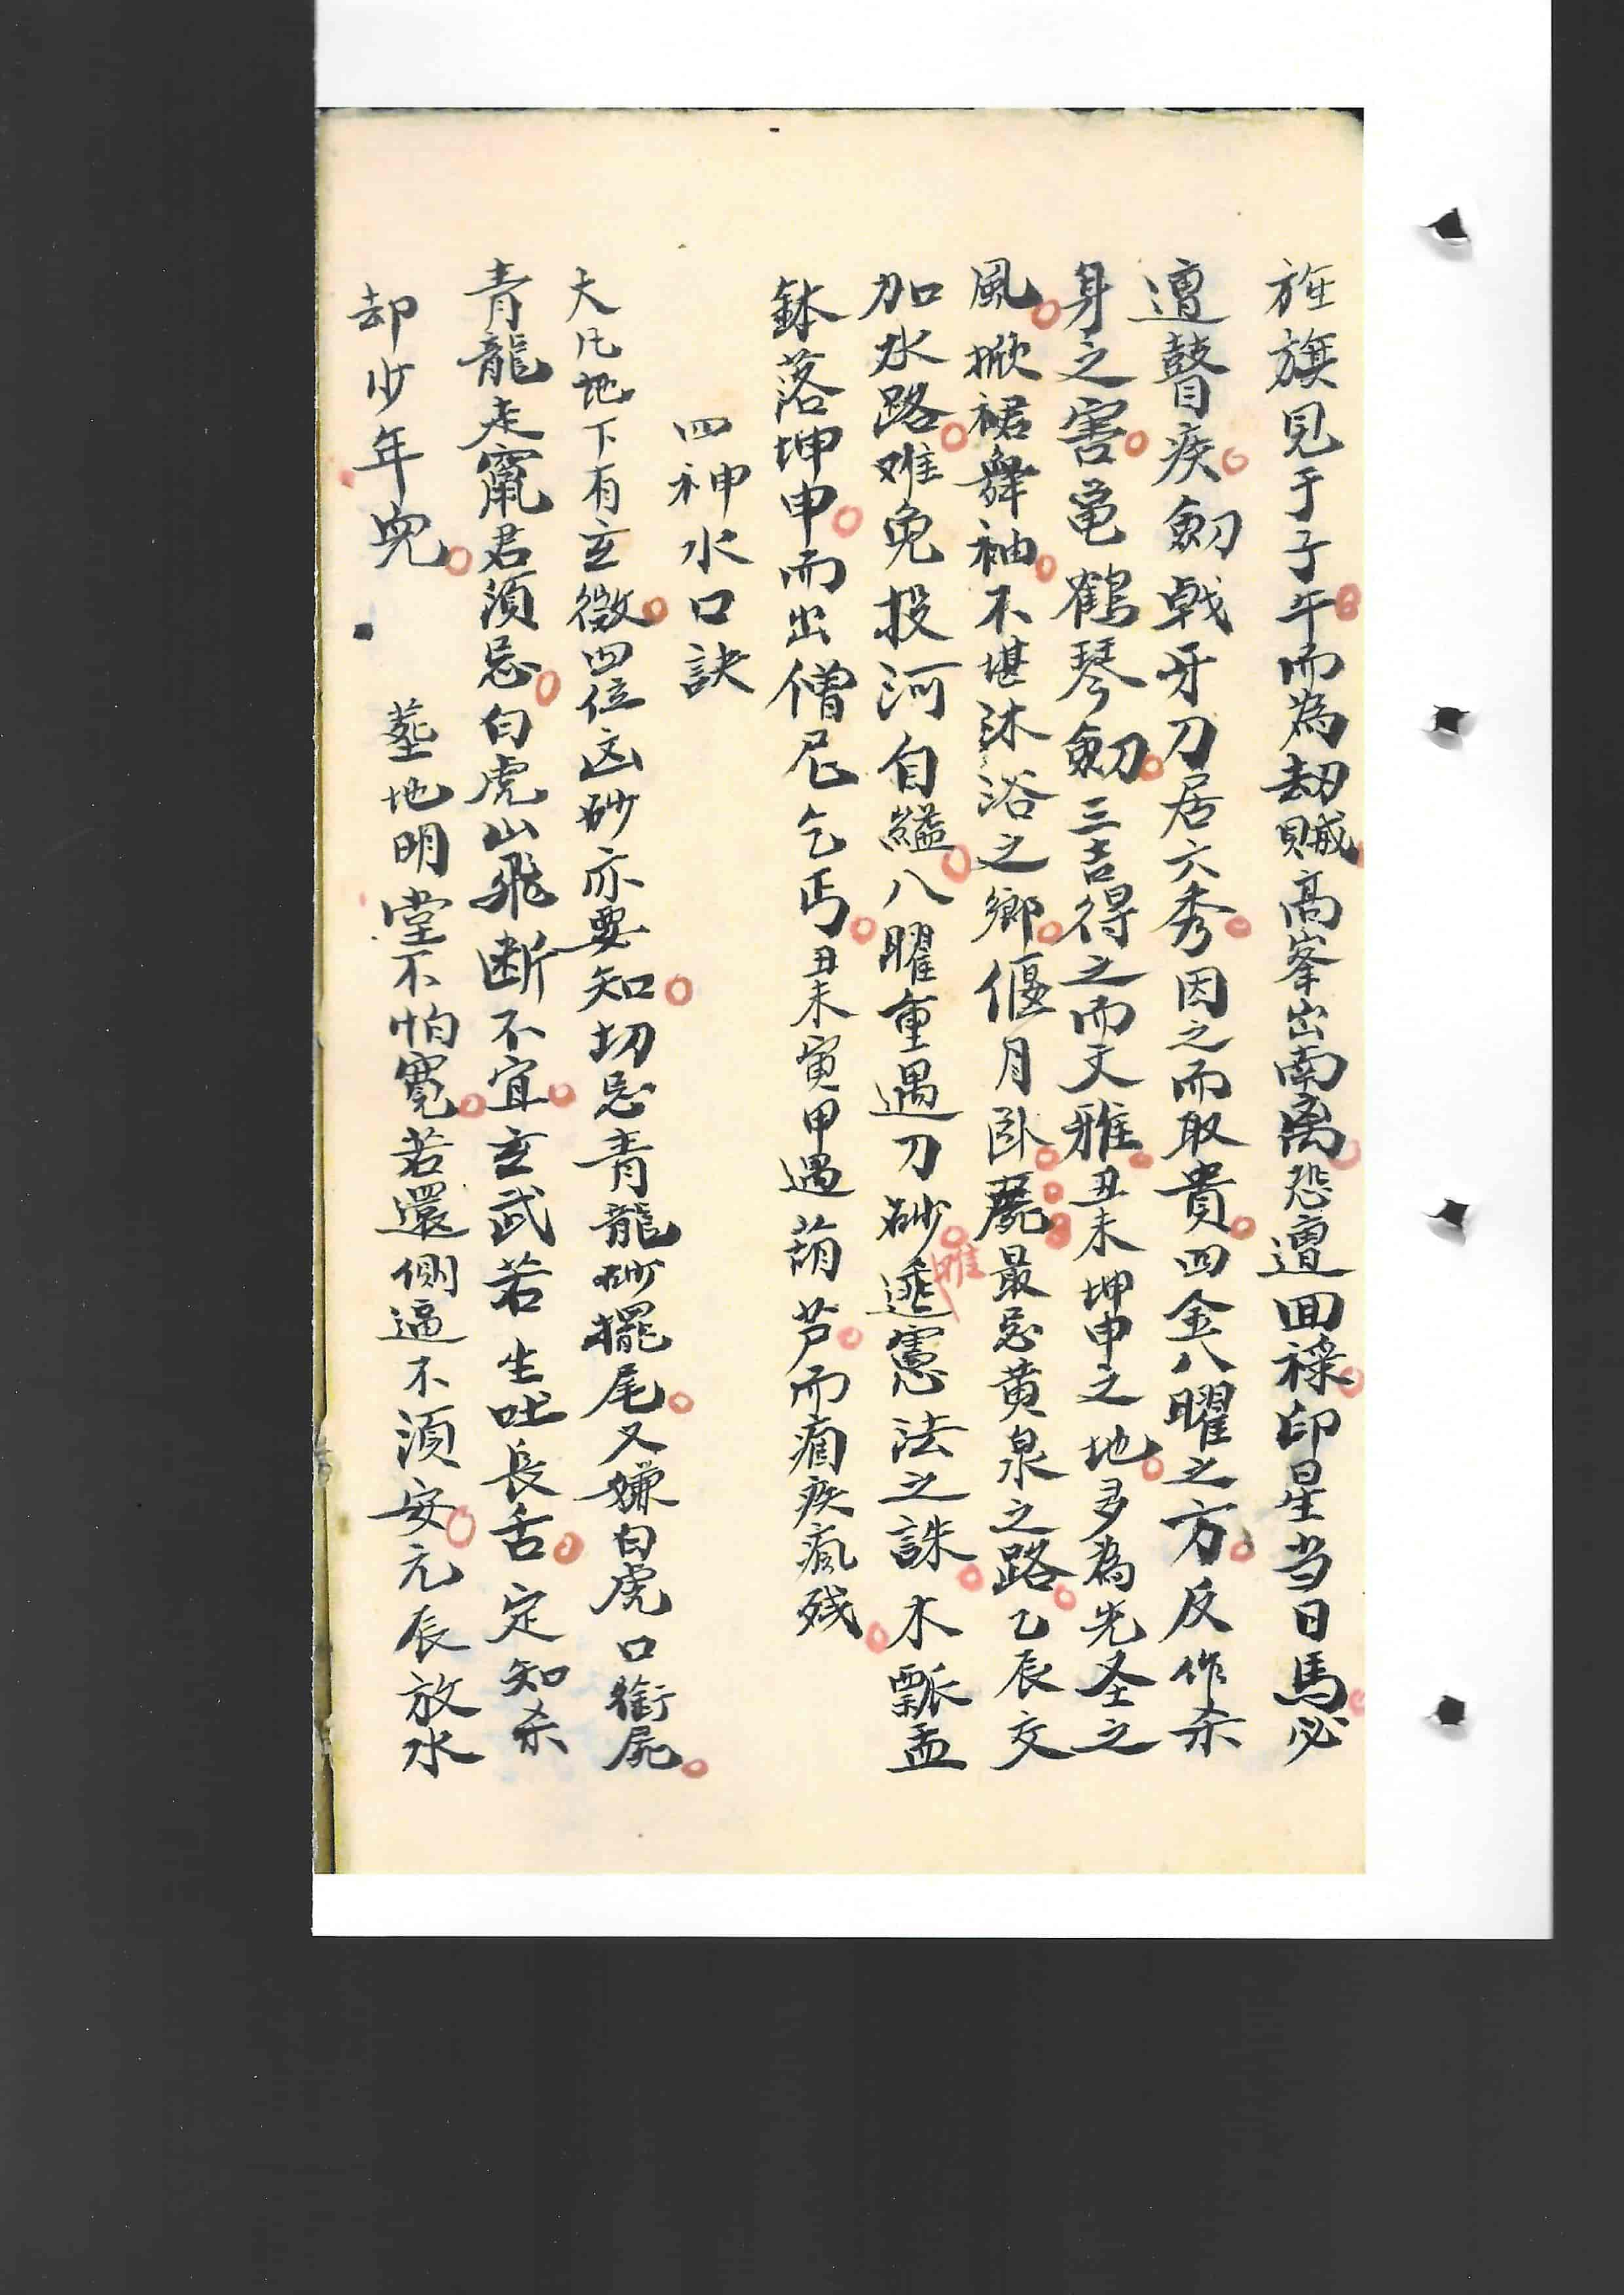 旌旗見于子午而為劫賊高峯出南离恐遭回祿印星当日馬必
遭瞽疾劔戟牙刀居六秀因之而取貴四金八曜之方反作杀
身之害龟鶴琴劔三吉得之而文雅丑未坤申之地多為先圣之
風掀裙舞袖不堪沐浴之鄉偃月卧最忌黄泉之路乙辰交
加水路难免投河自縊八曜重遇刀砂遞憲法之誅木瓢盂
缽落坤申而出僧尼乞丐丑未寅甲遇葫芦而痼疾瘋残
四神水口訣
大凡地下有玄微四位凶砂亦要知切忌青龍砂擺尾又嫌白虎口銜屍
青龍走竄君須忌白虎山飛断不宜玄武若生吐長舌定知杀
却少年兒 葬地明堂不怕寬若還側逼不須安元辰放水